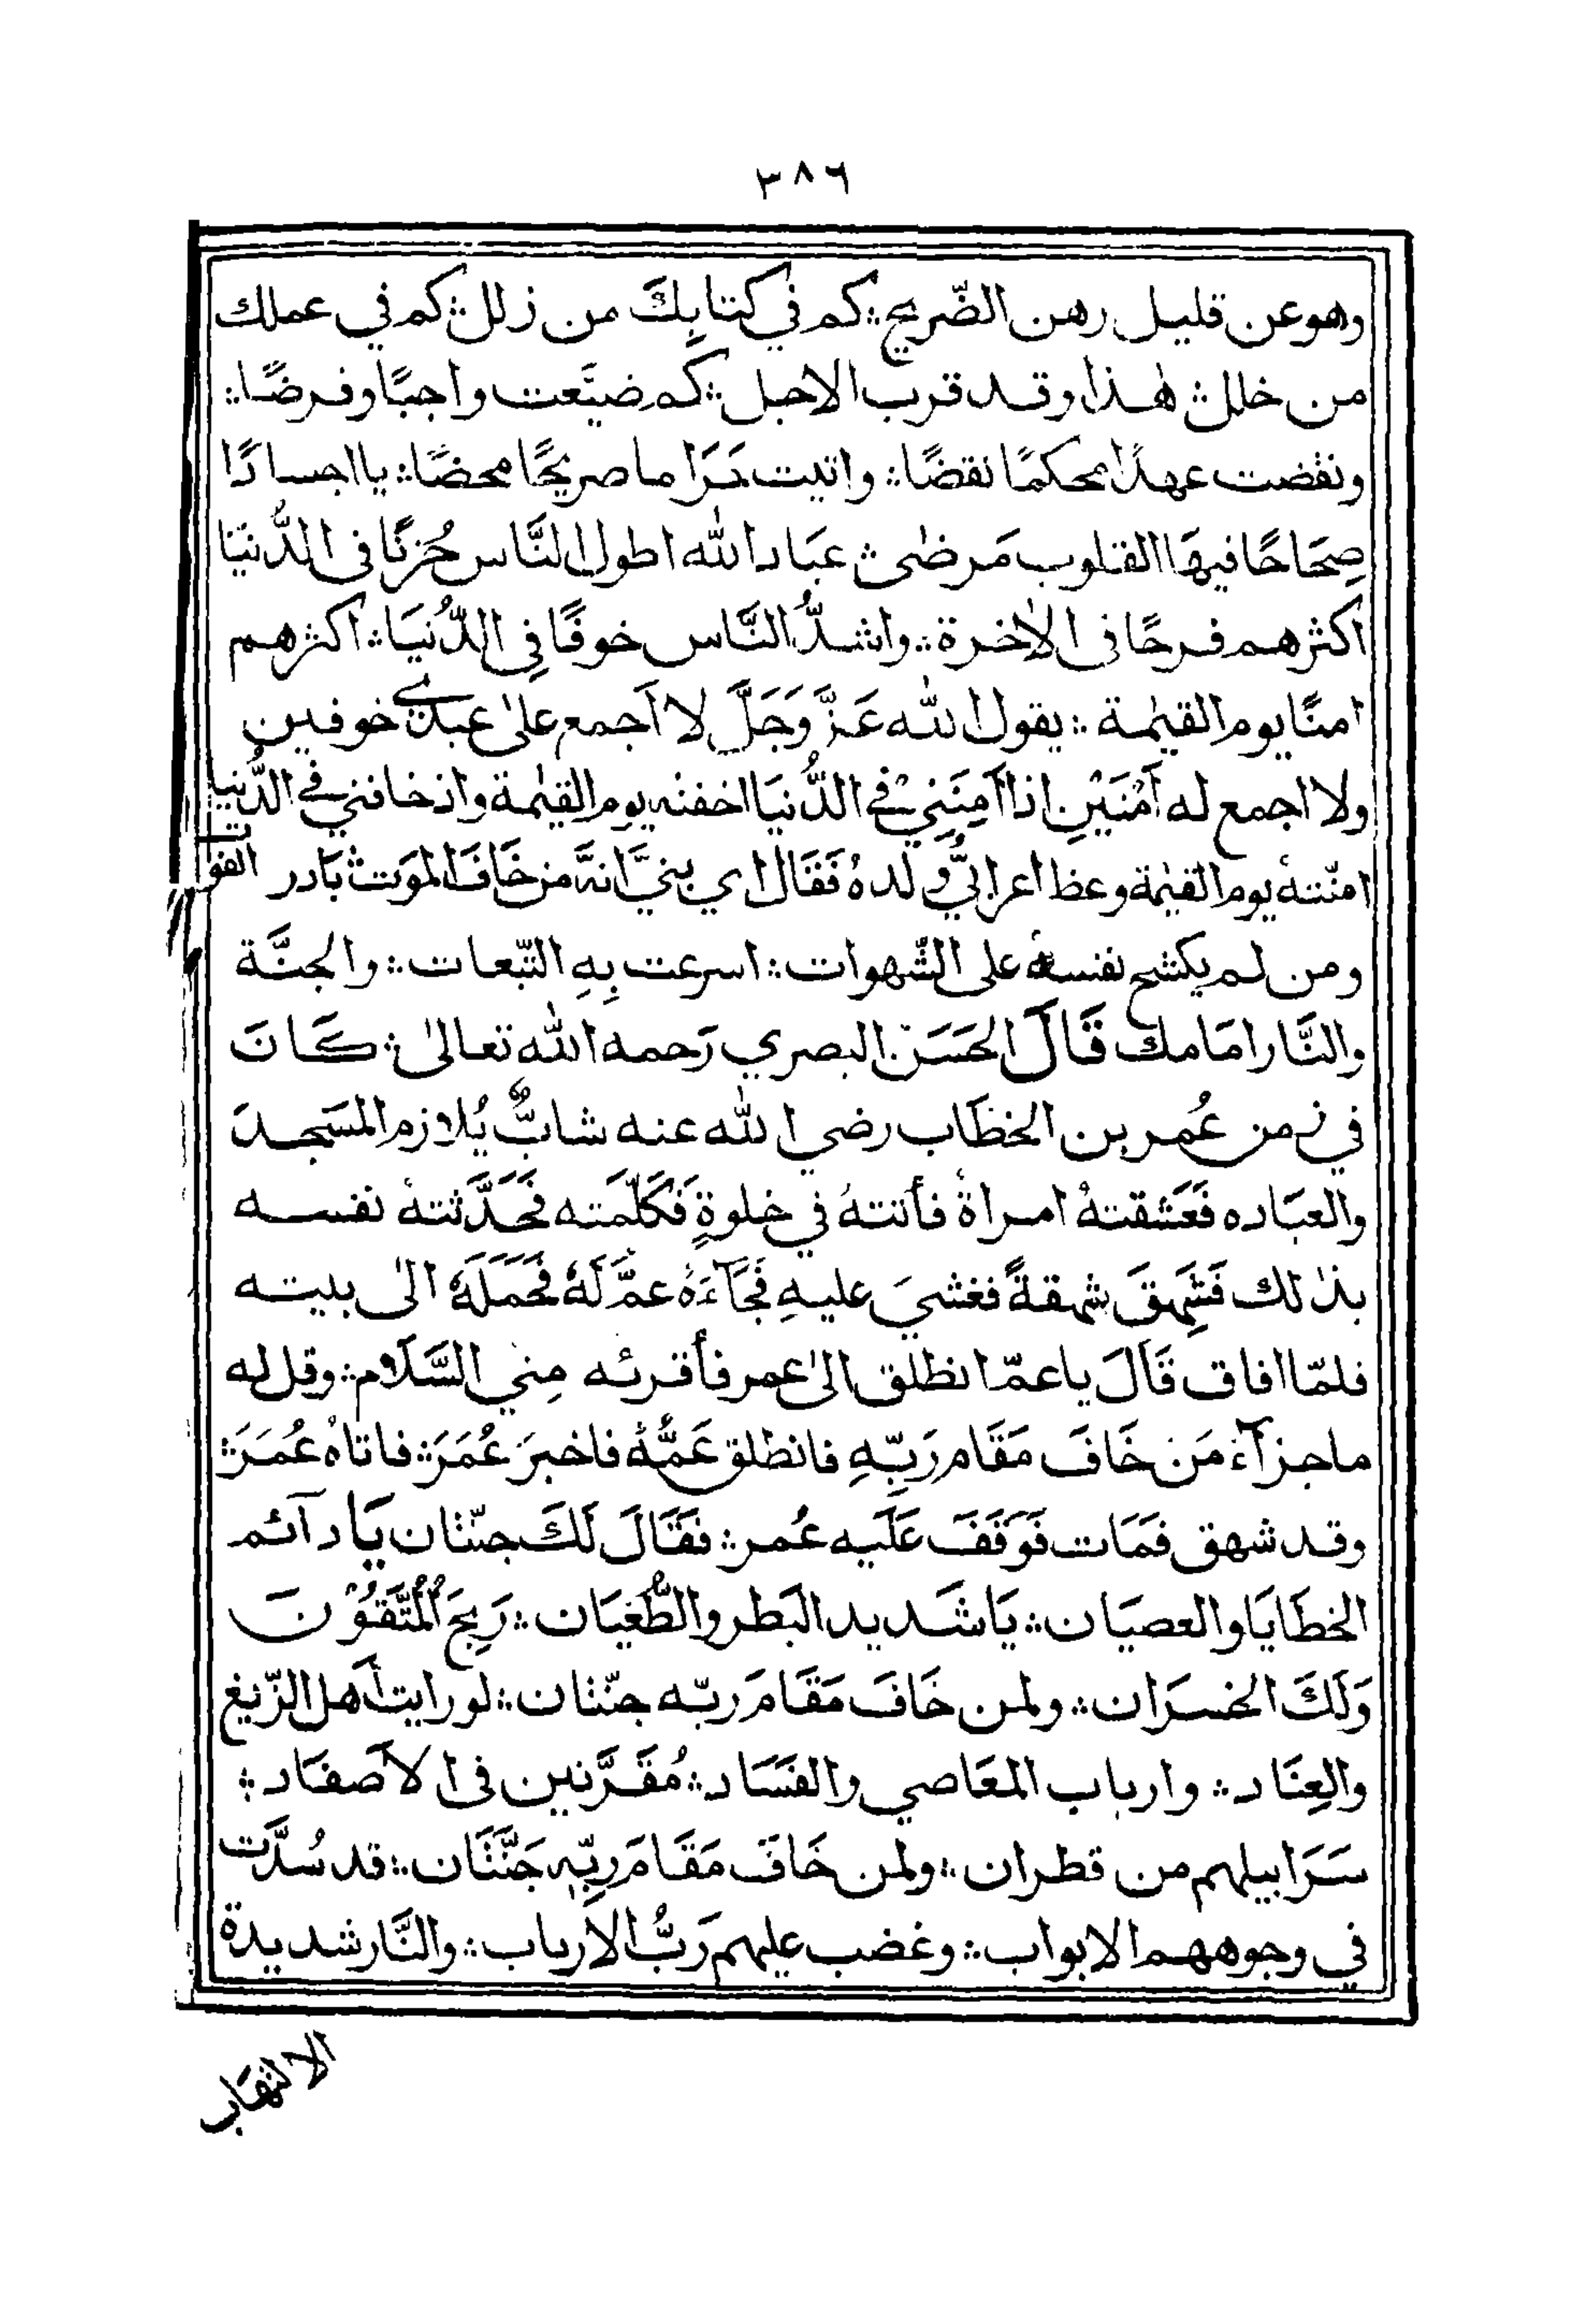 ٣٨٦
وهو عن قليل رهن الضّريح ؛ كم في كتابِكَ من زلل ؛ كم في عملك
من خلل ؛ هٰذا وقد قرب الاجل ؛ كم ضيَّعت واجبًا وفرضًا ؛
ونقضت عهدًا محكمًا نقضًا ؛ واتيت حَرَاما صريحًا محضًا ؛ يا اجسادًا
صِحَاحًا فيهَا القلوب مَرضٰى ؛ عبَاد الله اطول النَّاس حُزنًا فى الدُّنيَا
اكثرهم فرحًا فى الاٰخرة ؛ واشدُّ النَّاس خوفًا فِي الدُّنيَا ؛ اكثرهم
امنًا يوم القيٰمة ؛ يقول الله عَزَّ وَجَلَّ لا اَجمع علىٰ عبدى خوفين
ولا اجمع له اَمْنَيْنِ اذا اَمِنَنِيْ فے الدُّنيَا اخفته يوم القيٰمة واذ خافني فے الدُّنيا
امنّتهُ يوم القيٰمة وعظ اعرابيٌّ ولدهُ فَقَال اي بنيَّ انهَّ من خَافَ الموَت بَادر الفوَات
ومن لم يكشح نفسهُ على الشّهوات ؛ اسرعت بِهِ التّبعات ؛ والجنَّة
والنَّار امَامك قَالَ الحَسَن البصري رَحمه الله تعالىٰ ؛ كَانَ
في زمن عُمر بن الخطَاب رضي الله عنه شابٌّ يُلازم المسَجدَ
والعبَاده فَعَشقتهُ امراةٌ فأتتهُ في خلوةٍ فَكَلّمَته فَحَدَّثتهُ نفسه
بذٰلك فَشَهِقَ شهقةً فغشيَ عليهِ فَجَآءَهُ عمٌّ لَهُ فَحَمَلَهُ الىٰ بيته
فلمّا افاق قَالَ ياعمّ انطلق الىٰ عمر فأقرئه مِنيّ السَّلَام ؛ وقل له
ماجزآءُ مَن خَافَ مَقَام رَبِّهِ فانطلق عَمُّهُ فاخبرَ عُمَرَ ؛ فاتاهُ عُمَرَ ؛
وقد شهق فَمَات فَوَقَفَ عَلَيه عُمر ؛ فَقَالَ لَكَ جنّتان يَا دآئم
الخطَايَا والعصيَان ؛ يَا شَديد البَطر والطُّغيَان ؛ رَبِحَ الْمُتَّقُوْنَ
وَلَكَ الخسرَان ؛ ولمن خَافَ مَقَامَ ربّه جنّتان ؛ لورايت اَهل الزّيغ
والعِنَاد ؛ وارباب المعَاصي والفسَاد ؛ مُقَرَّنين فى الاَصفَاد ؛
سَرَابيلهم من قطران ؛ ولمن خَافَ مَقَامَ رَبِّهٖ جَنَّتَان ؛ قد سُدَّت
في وجوههم الابواب ؛ وغضب عليهم رَبُّ الارباب ؛ والنَّار شديدة
الالتهَاب